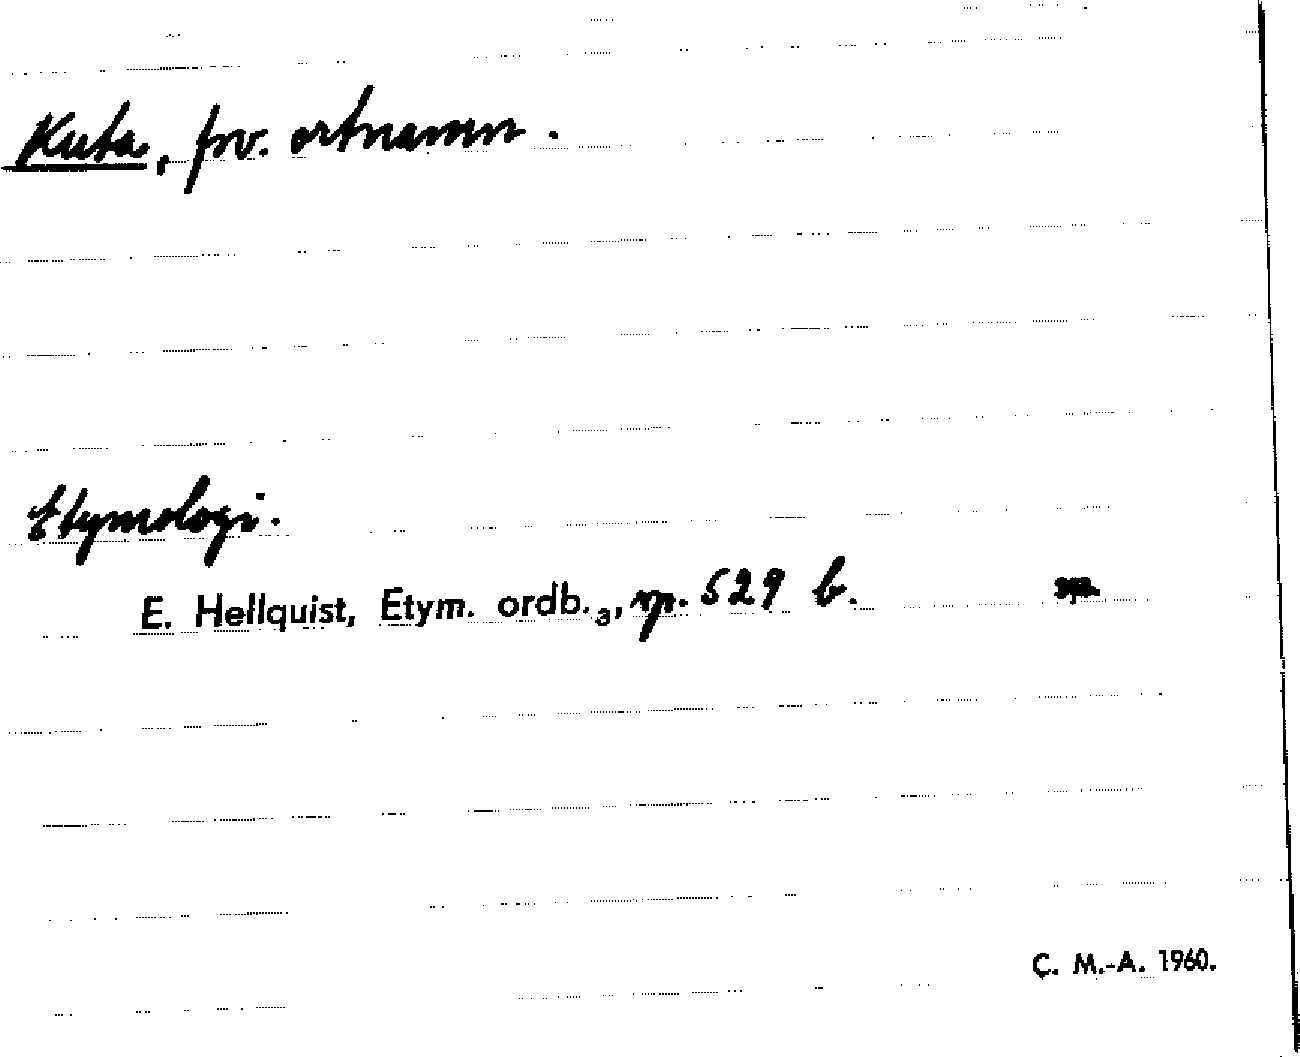 Kuta, fnv. ortnamn.
Etymologi.
E. Hellquist, Etym. ordb.3, sp. 529 b.
C. M.-A. 1960.